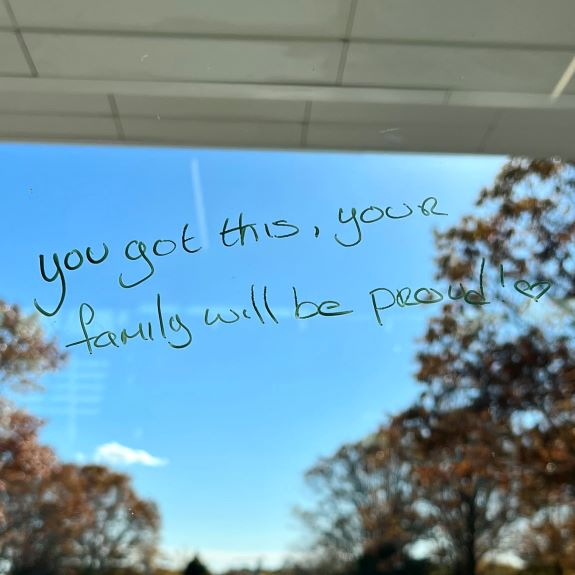 you got this, your
family will be proud! ♡